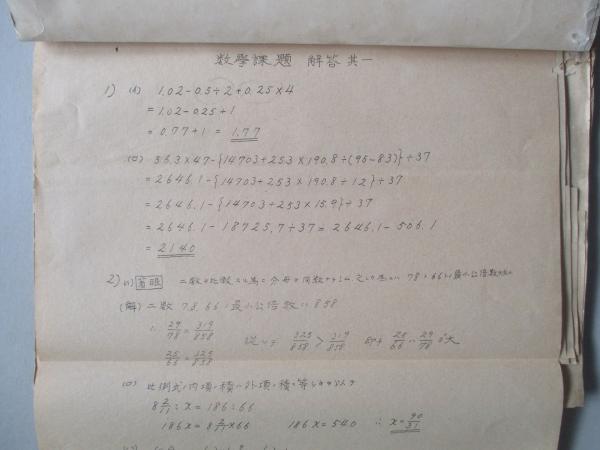 数學課題 解答 其一
1) (イ) 1.02-0.5÷2+0.25×4
=1.02-0.25+1
=0.77+1=1.77
(ロ) 56.3×47-{14703+253×190.8÷(95-83)}÷37
=2646.1-{14703+253×190.8÷12}÷37
=2646.1-{14703+253×15.9}÷37
=2646.1-18725.7÷37=2646.1-506.1
=2140
2) (イ) 着眼 二数ヲ比較スル為ニ分母ヲ同数ナラシム 之レガ為ニハ 78ト66ノ最小公倍数
(解) 二数 78, 66ノ最小公倍数ハ858
∴ 29/78=319/858
25/66=325/858 従ッテ 325/858>319/858 即チ 25/66ハ29/78ヨリ大
(ロ) 比例式ノ内項ノ積ハ外項ノ積ニ等シキヲ以テ
8 2/11:x=186:66
186x=8 2/11×66 186x=540 ∴x=90/31